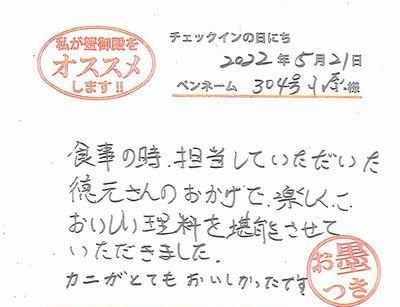 私が蟹御殿を
オススメ
します!!
チェックインの日にち
2022年5月21日
ペンネーム 304号 小原 様
食事の時、担当していただいた
徳元さんのおかげで、楽しく、
おいしい理料を堪能させて
いただきました。
カニがとてもおいしかったです
お墨
つき